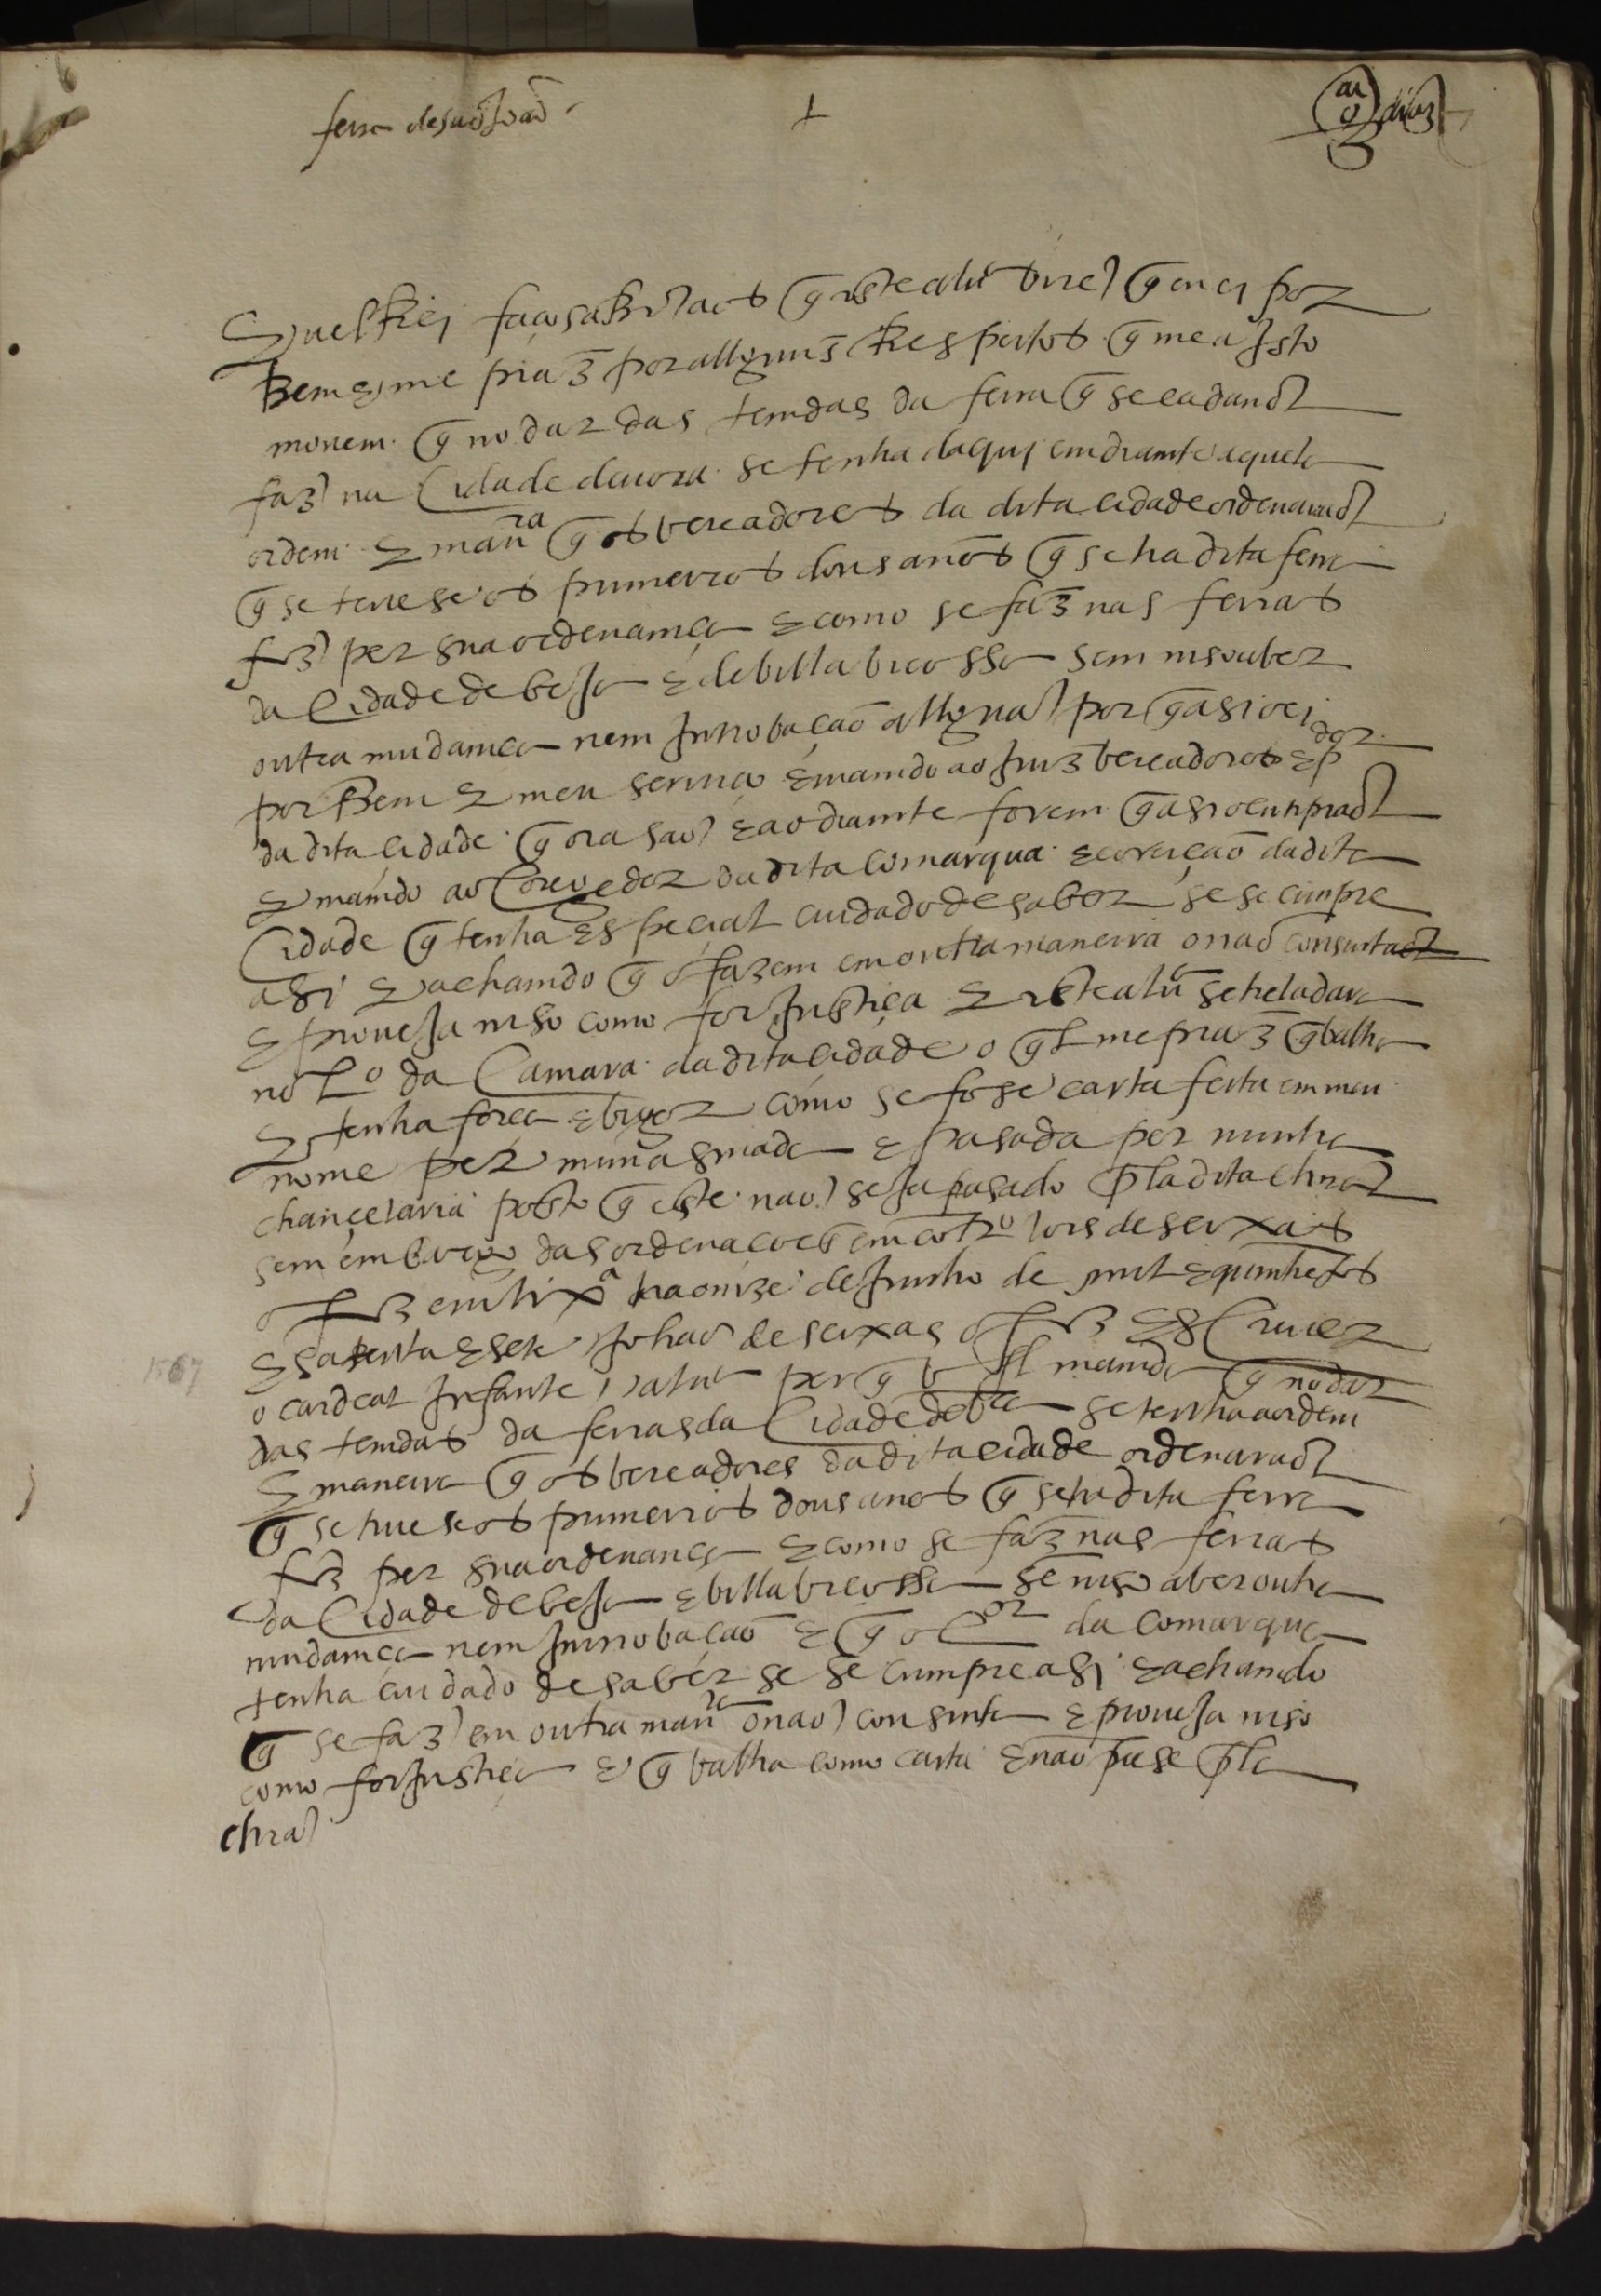 feira de são João
Eu el Rei faço saber aos q este alu virẽ q eu ei por
bem e me praz por allguns Respeitos q me a Isto
movem q no dar das temdas da feira q se cada anno
faz na Cidade devora se tenha daqui em diamte aquela
ordem e manra q os vereadores da dita cidade ordenarão
q se tevese os primeiros dous anos q se ha dita feira
fez per sua ordenamça e como se faz nas feiras
da Cidade de beja e de billa bicossa sem niso aber
outra mudamça nem Innobação allgũa por q asi o ei
por bem e meu serviço e mamdo ao Juiz vereadores e pdor
da dita cidade q ora são e ao diamte forem q asi o cumprão
e mamdo ao Coregedor da dita Comarqua e coreição da dita
Cidade q tenha especial cuidado de saber se se cumpre
asi e achamdo q o fazem em outra maneira o não consinta
e proveja niso como for Justiça e este alu se treladara
no Lo da Camara da dita cidade o ql me praz q balha
e tenha força e bigor como se fose carta feita em meu
nome per mim asinada e pasada per minha
chançelaria posto q este não seja pasado pla dita chra
sem embargo das ordenacoes em contro Jorge de seixas
o fez em lixa ha omze de Junho de mil e quinhetos
e satenta e sete Johão de seixas o fez escrever
1567
o cardeal Infante alu per q v al mamda q no dar
das temdas da feiras da Cidade de bra se tenha a ordem
e maneira q os vereadores da dita cidade ordenarão
q se tivese os primeiros dous anos q se ha dita feira
fez per sua ordenança e como se faz nas feiras
da Cidade de beja e billa bicossa sẽ niso aber outra
mudamça nem Innobação e q o Cor da Comarqua
tenha cuidado de saber se se cumpre asi e achamdo
q se faz em outra manra o não consinta e proveja niso
como for Justiça e q balha como carta e não pase pla
chra